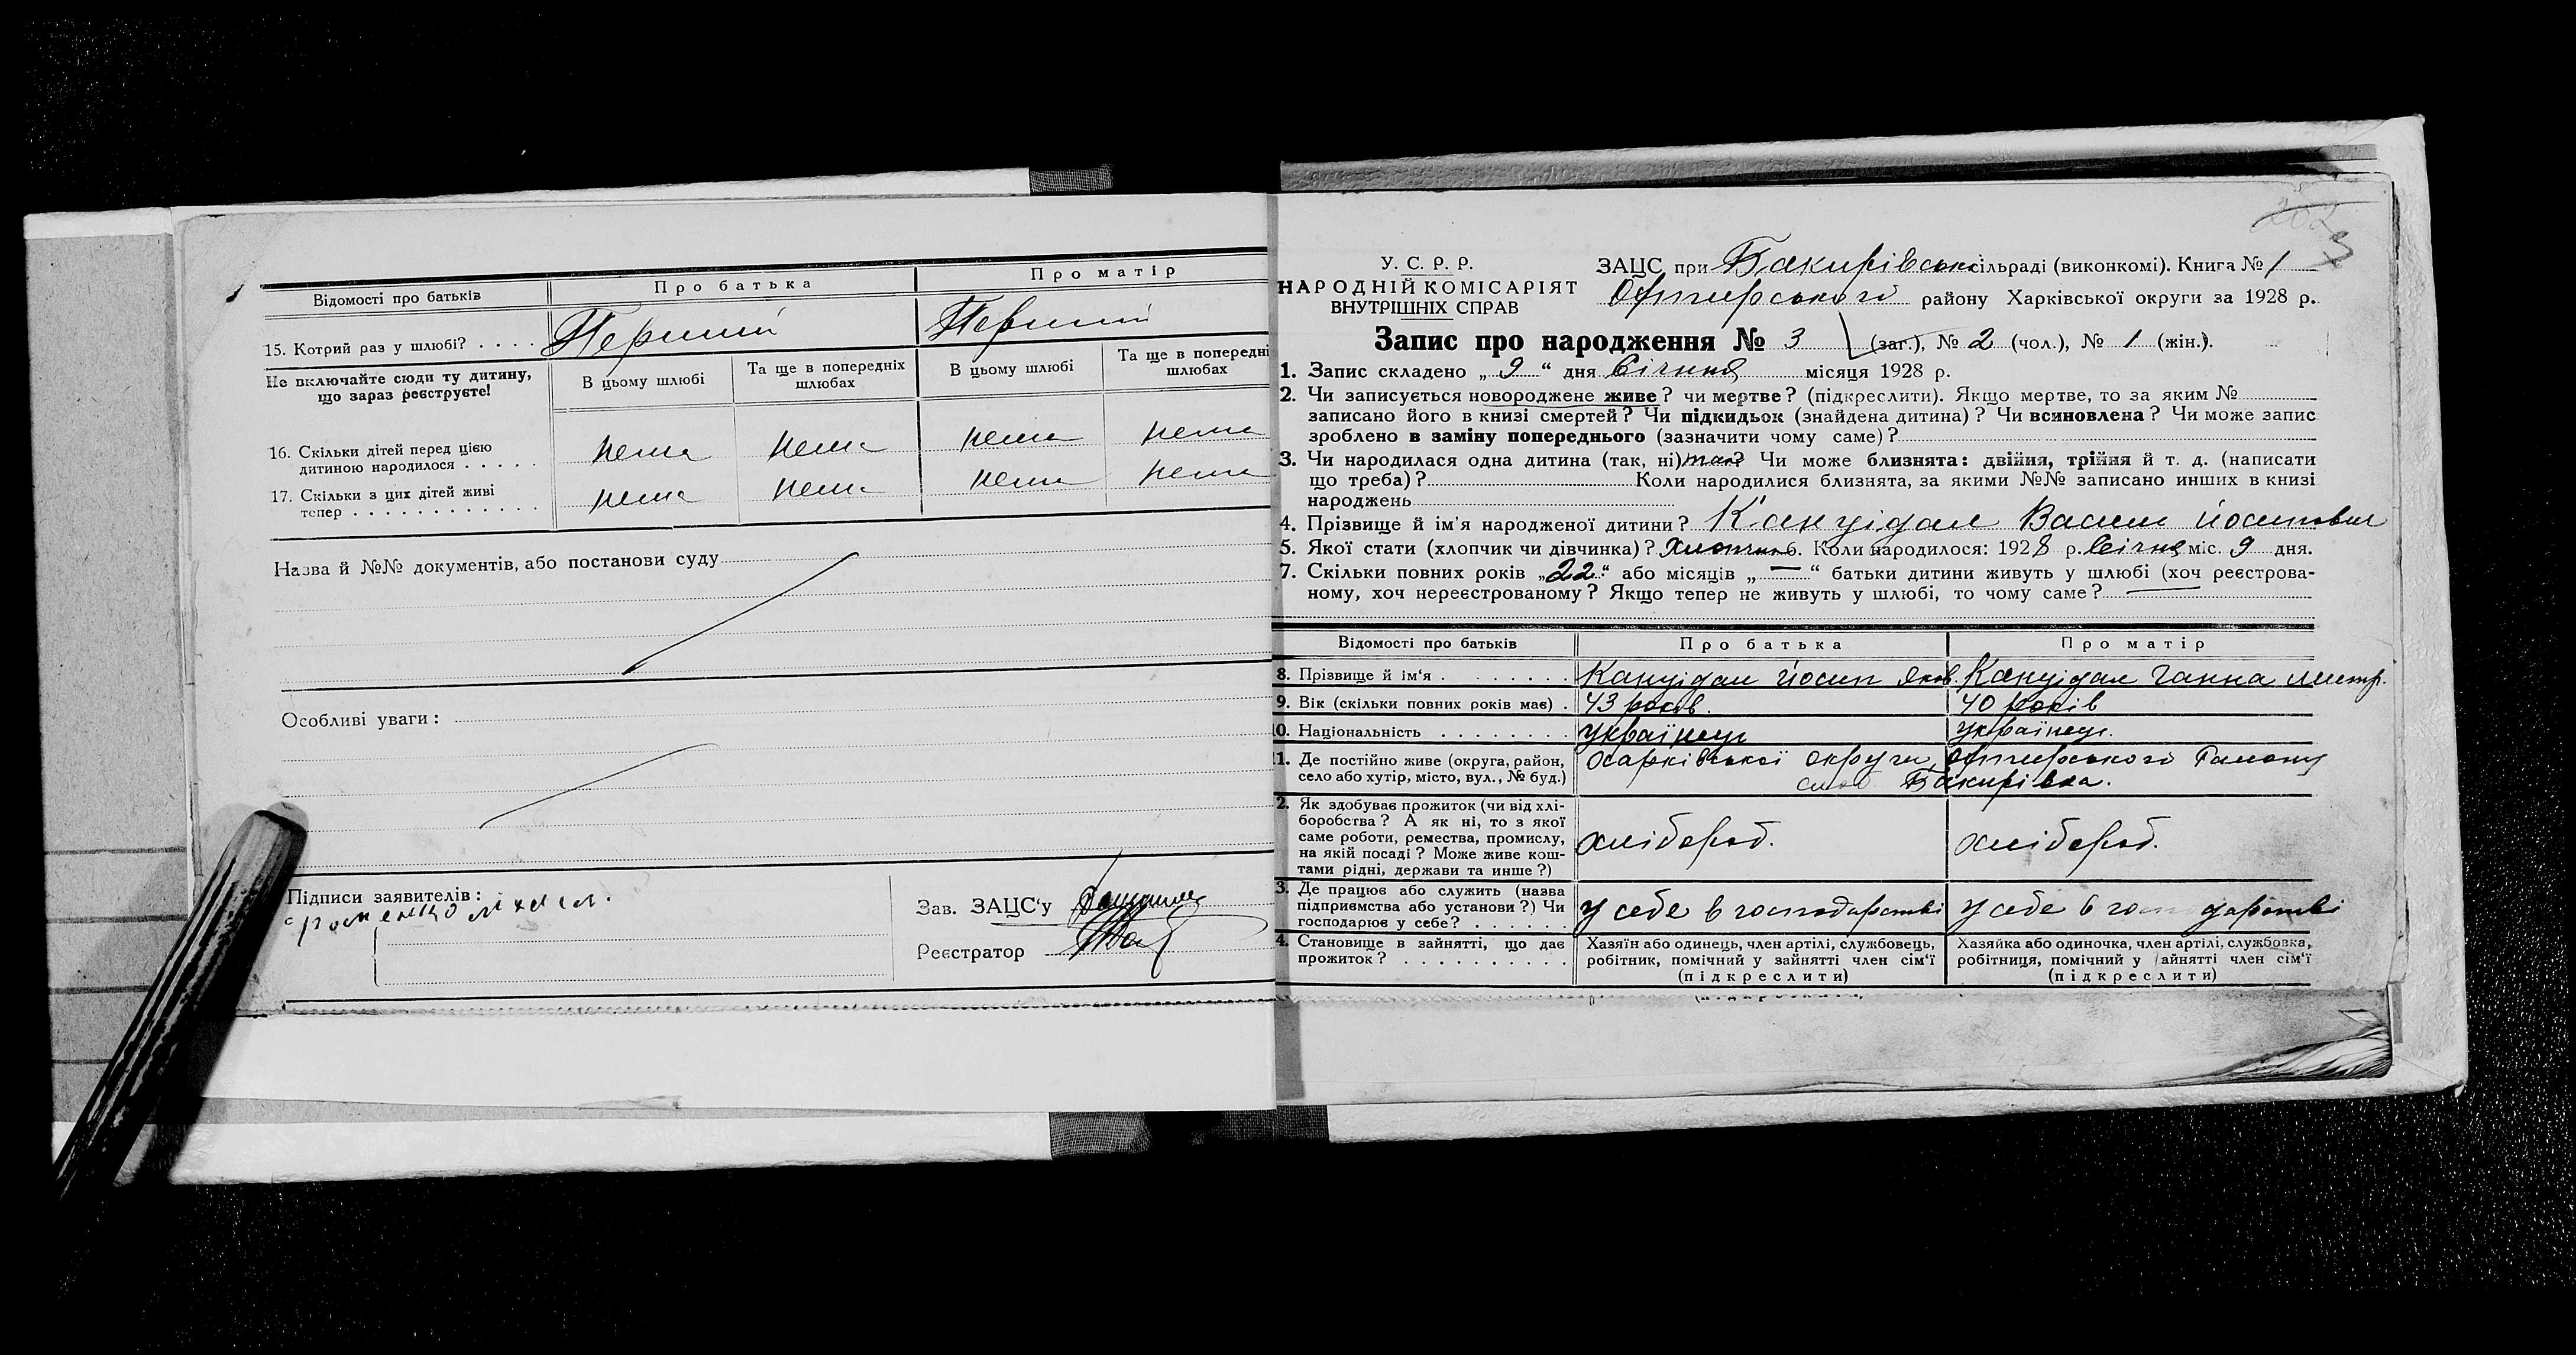 Відомості про батьків
Про батька
Про матір
15. Котрий раз у шлюбі? . . . .
Перший
Перший
Не включайте сюди ту дитину,
що зараз реєструєте!
В цьому шлюбі
Та ще в попередніх
шлюбах
В цьому шлюбі
Та ще в попередні
шлюбах
16. Скільки дітей перед цією
дитиною народилося . . . . .
нема нема нема нема
17. Скільки з цих дітей живі
тепер . . . . . . . . . . . .
нема нема нема нема
Назва й №№ документів, або постанови суду
Особливі уваги:
Підписи заявителів:
Зав. ЗАЦС'у
Реєстратор
202
3
У. С. Р. Р.
НАРОДНІЙ КОМІСАРІЯТ
ВНУТРІШНІХ СПРАВ
ЗАЦС при Бакирівській сільраді (виконкомі). Книга № 1
Охтирського району Харківської округи за 1928 р.
Запис про народження № 3 (заг.), № 2 (чол.), № 1 (жін.).
1. Запис складено „ 9 “ дня Січня місяця 1928 р.
2. Чи записується новороджене живе? чи мертве? (підкреслити). Якщо мертве, то за яким №
записано його в книзі смертей? Чи підкидьок (знайдена дитина)? Чи всиновлена? Чи може запис
зроблено в заміну попереднього (зазначити чому саме)?
3. Чи народилася одна дитина (так, ні) так? Чи може близнята: двійня, трійня й т. д. (написати
що треба)? Коли народилися близнята, за якими №№ записано инших в книзі
народжень
4. Прізвище й ім'я народженої дитини? Канцідал Васил йосипович
5. Якої стати (хлопчик чи дівчинка)? Хлопчик 6. Коли народилося: 1928 р. Січня міс. 9 дня.
7. Скільки повних років „22“ або місяців „ — “ батьки дитини живуть у шлюбі (хоч реєстрова-
ному, хоч нереєстрованому? Якщо тепер не живуть у шлюбі, то чому саме? —
Відомості про батьків
Про батька
Про матір
8. Прізвище й ім'я . . . . . . . .
Канцідал йосип Яков.
Канцідал Ганна
9. Вік (скільки повних років має) .
43 років.
40 років
10. Національність . . . . . . . .
українець
українец.
11. Де постійно живе (округа, район,
село або хутір, місто, вул., № буд.)
Харківської округи, Охтирського Району
слоб. Бакирівка.
2. Як здобуває прожиток (чи від хлі-
боробства? А як ні, то з якої
саме роботи, ремества, промислу,
на якій посаді? Може живе кош-
тами рідні, держави та инше?)
хлібороб.
хлібороб.
3. Де працює або служить (назва
підприємства або установи?) Чи
господарює у себе? . . . . . .
у себе в господарстві
у себе в господарстві
4. Становище в зайнятті, що дає
прожиток? . . . . . . . . . .
Хазяїн або одинець, член артілі, службовець,
робітник, помічний у зайнятті член сім'ї
(підкреслити)
Хазяйка або одиночка, член артілі, службовка,
робітниця, помічний у зайнятті член сім'ї
(підкреслити)